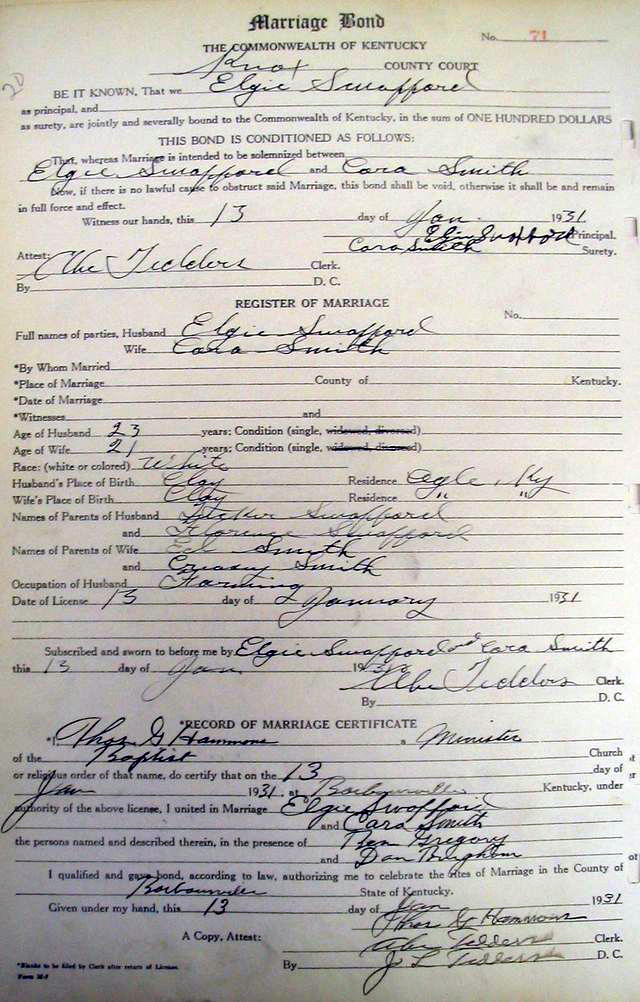 Marriage Bond
No. 71
THE COMMONWEALTH OF KENTUCKY
20
Knox COUNTY COURT
BE IT KNOWN, That we Elgie Swafford
as principal, and
as surety, are jointly and severally bound to the Commonwealth of Kentucky, in the sum of ONE HUNDRED DOLLARS
THIS BOND IS CONDITIONED AS FOLLOWS:
That, whereas Marriage is intended to be solemnized between
Elgie Swafford and Cora Smith
Now, if there is no lawful cause to obstruct said Marriage, this bond shall be void, otherwise it shall be and remain
in full force and effect.
Witness our hands, this 13 day of Jan. 1931
Elgie Swafford Principal.
Cora Smith Surety.
Attest:
Abe Tedders Clerk.
By D. C.
REGISTER OF MARRIAGE
No.
Full names of parties, Husband Elgie Swafford
Wife Cora Smith
*By Whom Married
*Place of Marriage County of Kentucky.
*Date of Marriage
*Witnesses and
Age of Husband 23 years; Condition (single, widowed, divorced)
Age of Wife 21 years; Condition (single, widowed, divorced)
Race: (white or colored) White
Husband's Place of Birth Clay Residence Ogle, Ky
Wife's Place of Birth Clay Residence " "
Names of Parents of Husband Swafford
and Florence Swafford
Names of Parents of Wife Ed Smith
and Creasy Smith
Occupation of Husband Farming
Date of License 13 day of January 1931
Subscribed and sworn to before me by Elgie Swafford and Cora Smith
this 13 day of Jan 1931
Abe Tedders Clerk.
By D. C.
*RECORD OF MARRIAGE CERTIFICATE
*I, Thos G Hammons a Minister
of the Baptist Church
or religious order of that name, do certify that on the 13 day of
Jan 1931, at Barbourville Kentucky, under
authority of the above license, I united in Marriage Elgie Swafford
and Cara Smith
the persons named and described therein, in the presence of Ben Gregory
and Dan
I qualified and gave bond, according to law, authorizing me to celebrate the rites of Marriage in the County of
Barbourville State of Kentucky.
Given under my hand, this 13 day of Jan 1931
Thos G Hammons
A Copy, Attest: Abe Tedders Clerk.
By J L Tedders D. C.
*Blanks to be filed by Clerk after return of License.